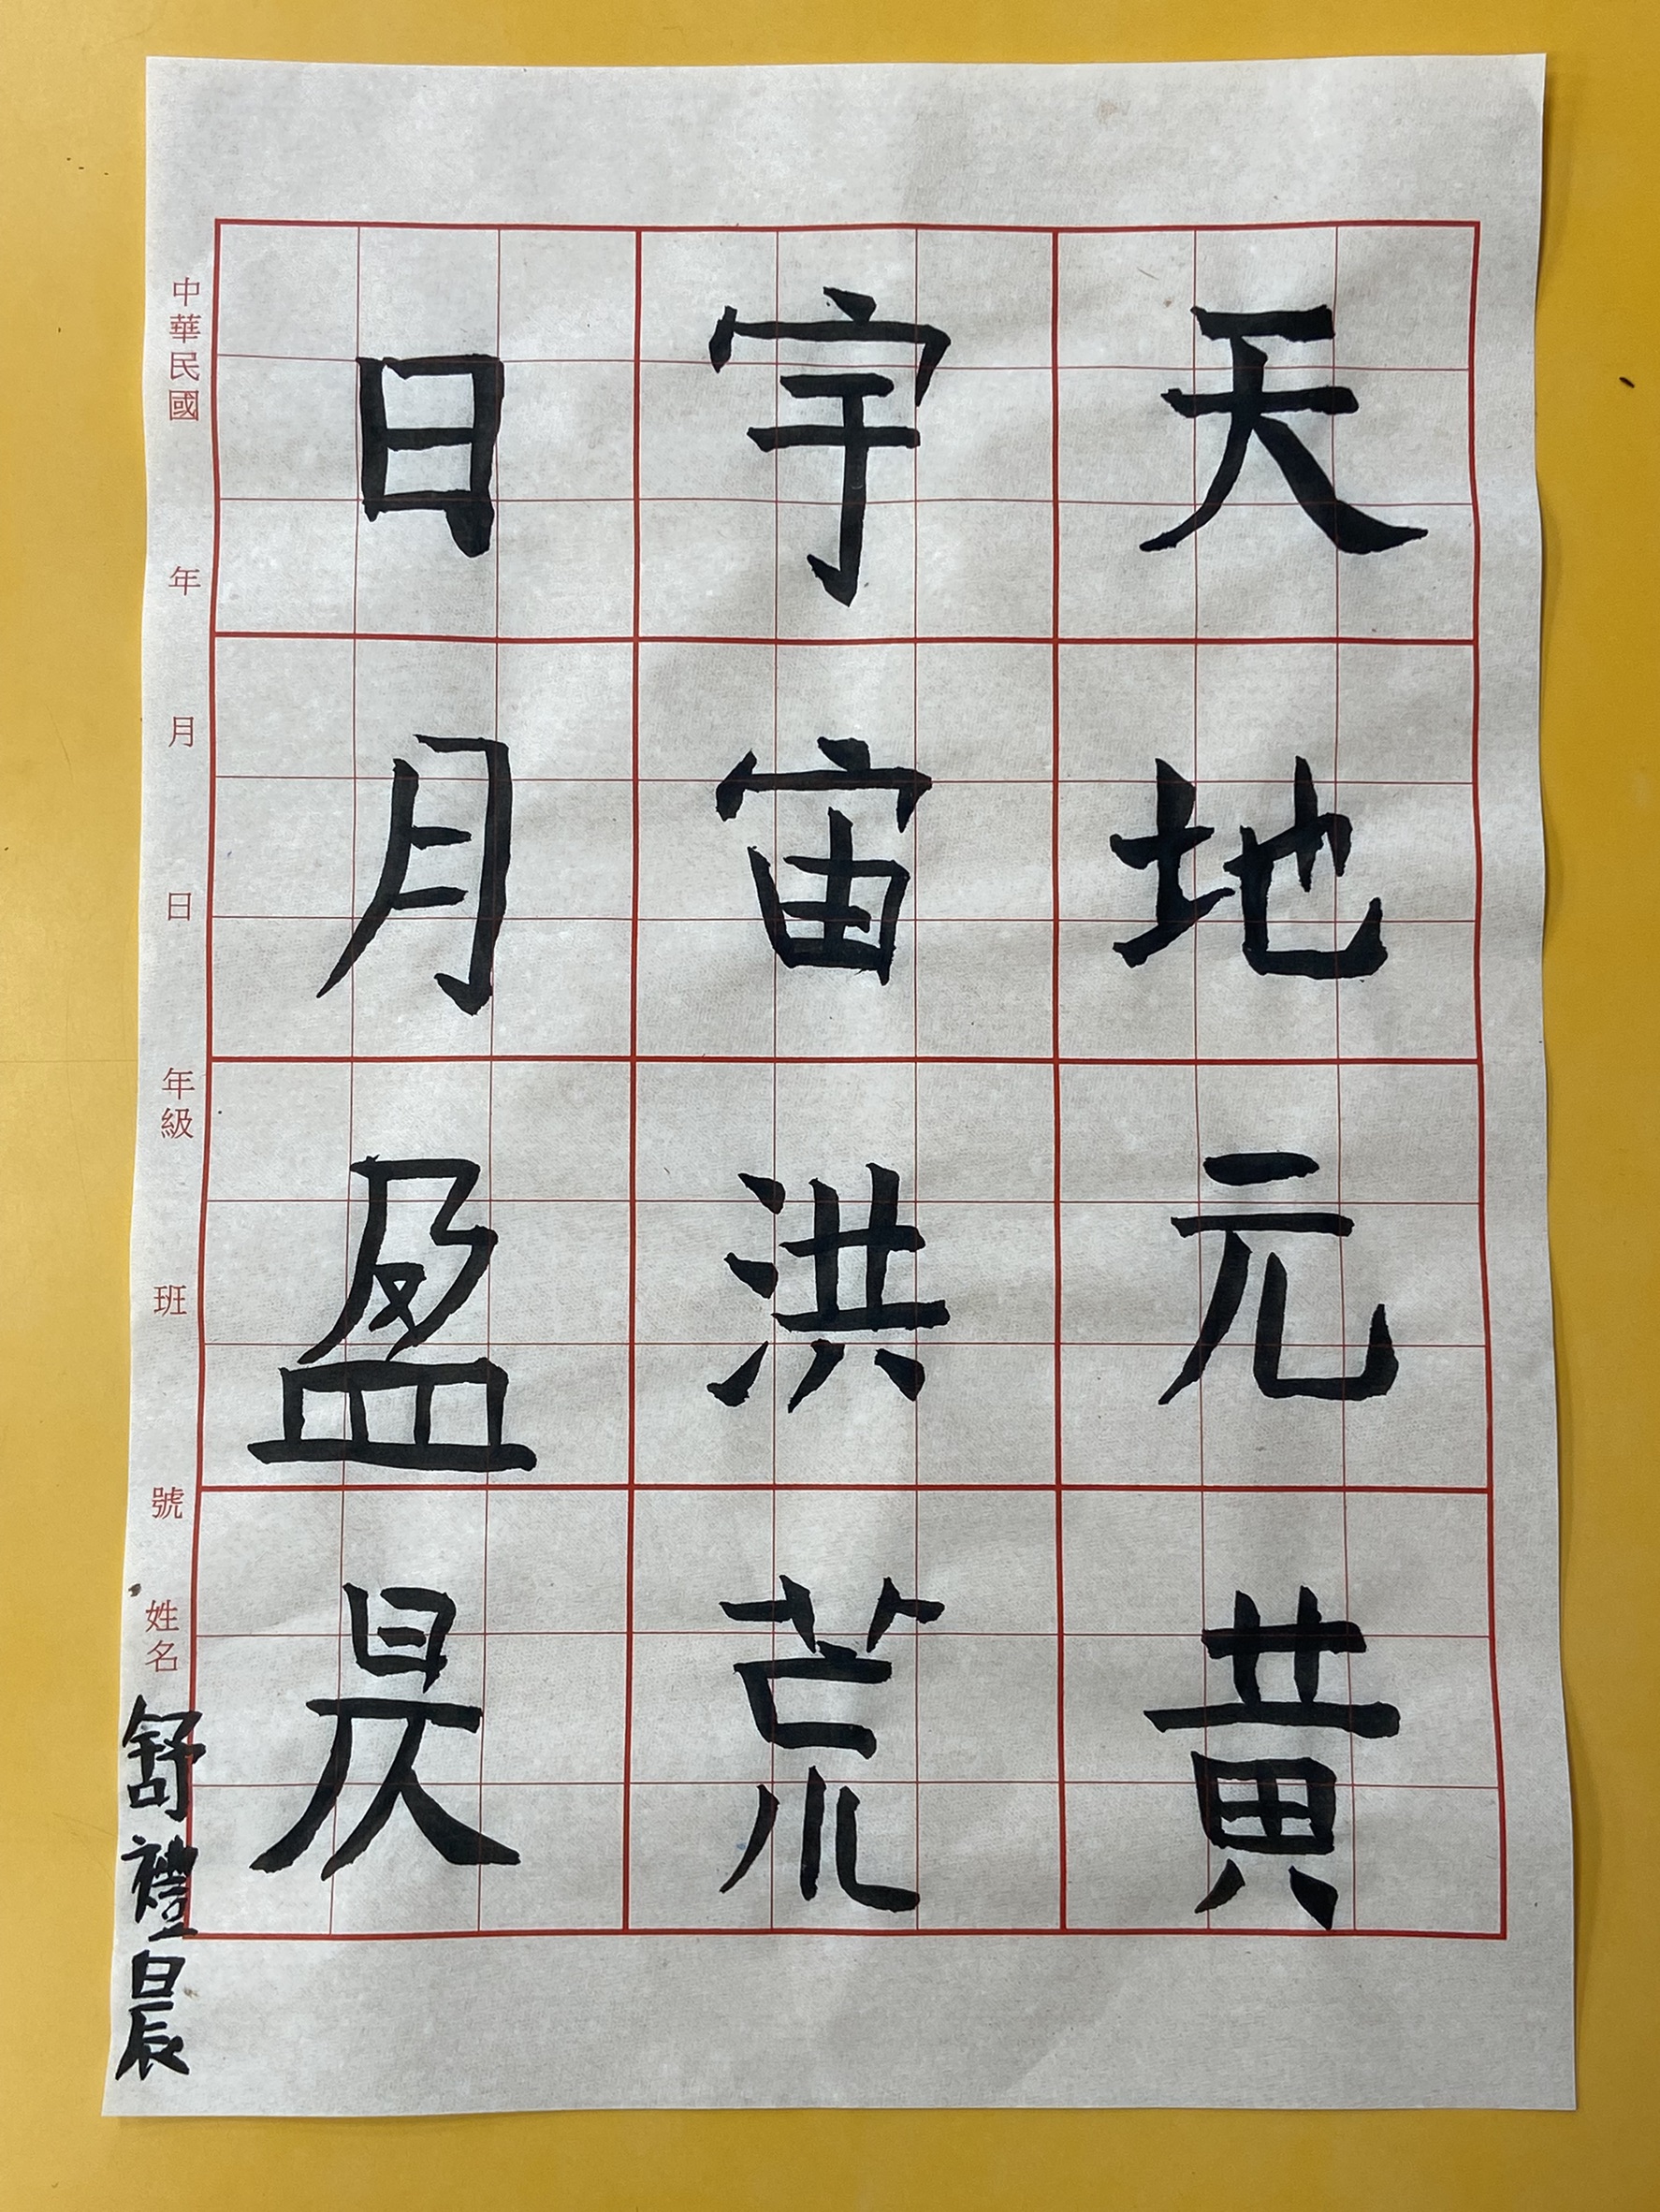 天地元黄
宇宙洪荒
日月盈昃
中華民國 年 月 日 年級 班 號 姓名 舒禮晨